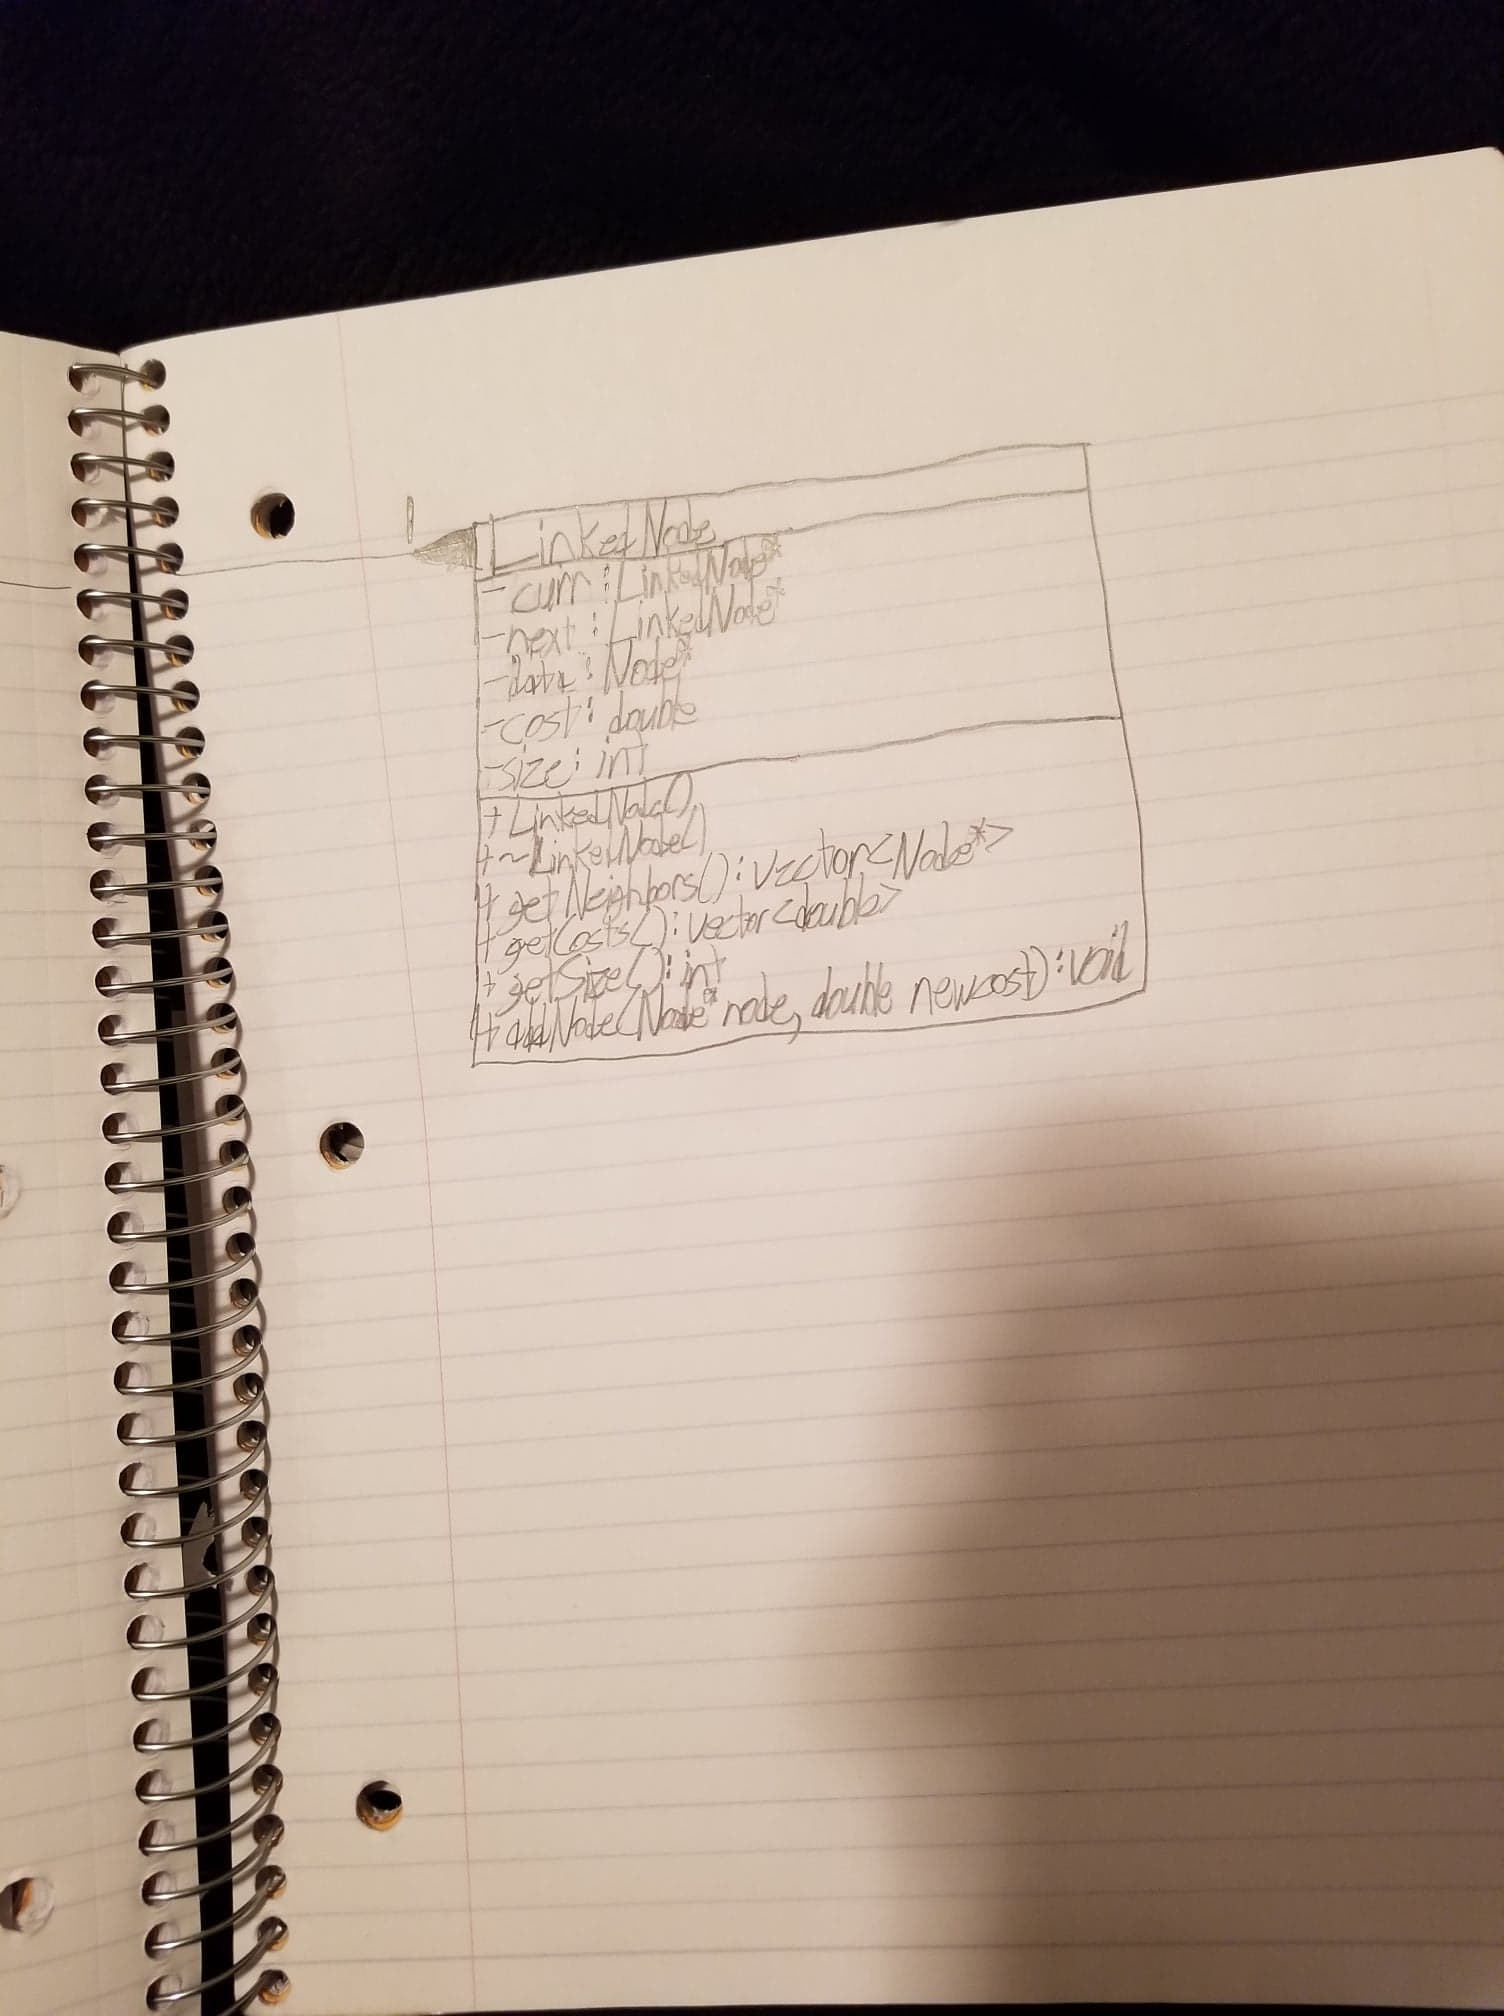 1
LinkedNode
- curr : LinkedNode*
- next : LinkedNode*
- data : Node*
- cost : double
- size : int
+ LinkedNode()
+ ~LinkedNode()
+ getNeighbors() : vector<Node*>
+ getCosts() : vector<double>
+ getSize() : int
+ addNode(Node* node, double newcost) : void